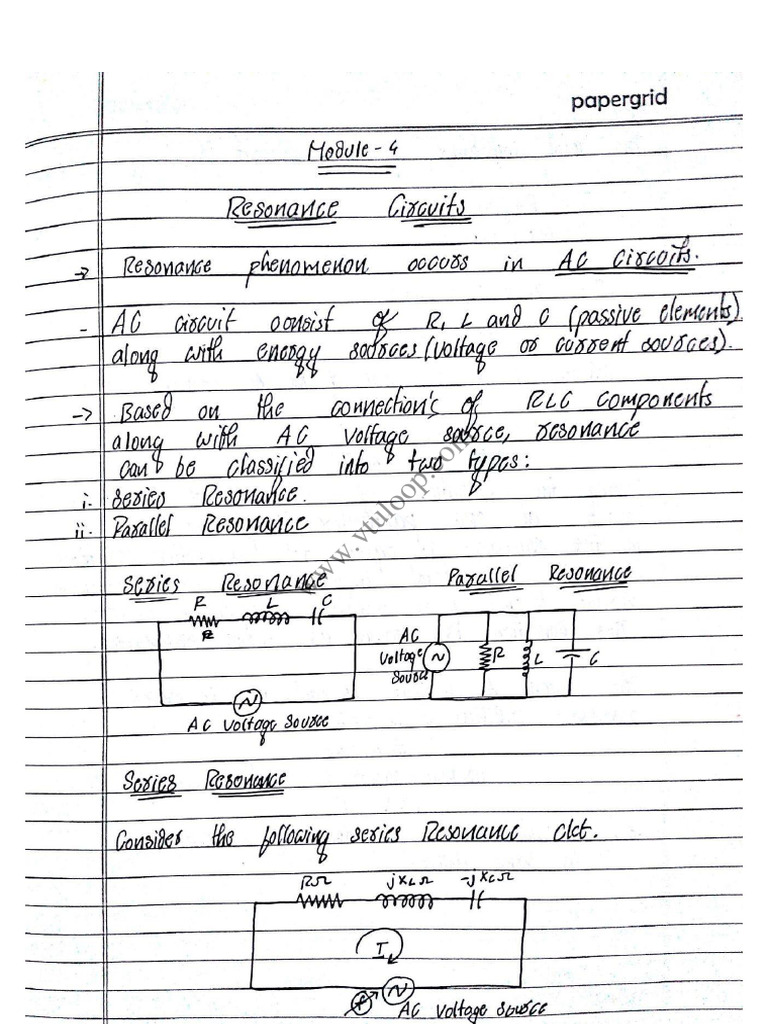 papergrid
Module - 4
Resonance Circuits
→ Resonance phenomenon occurs in AC circuits.
- AC circuit consist of R, L and C (passive elements)
along with energy sources (voltage or current sources).
→ Based on the connection's of RLC components
along with AC voltage source, resonance
can be classified into two types:
i. Series Resonance.
ii. Parallel Resonance
www.vtuloop.com
Series Resonance Parallel Resonance
R L C
R
AC
Voltage
Source
R L C
AC Voltage Source
Series Resonance
Consider the following series Resonance ckt.
RΩ jXLΩ -jXcΩ
I
f
AC Voltage Source